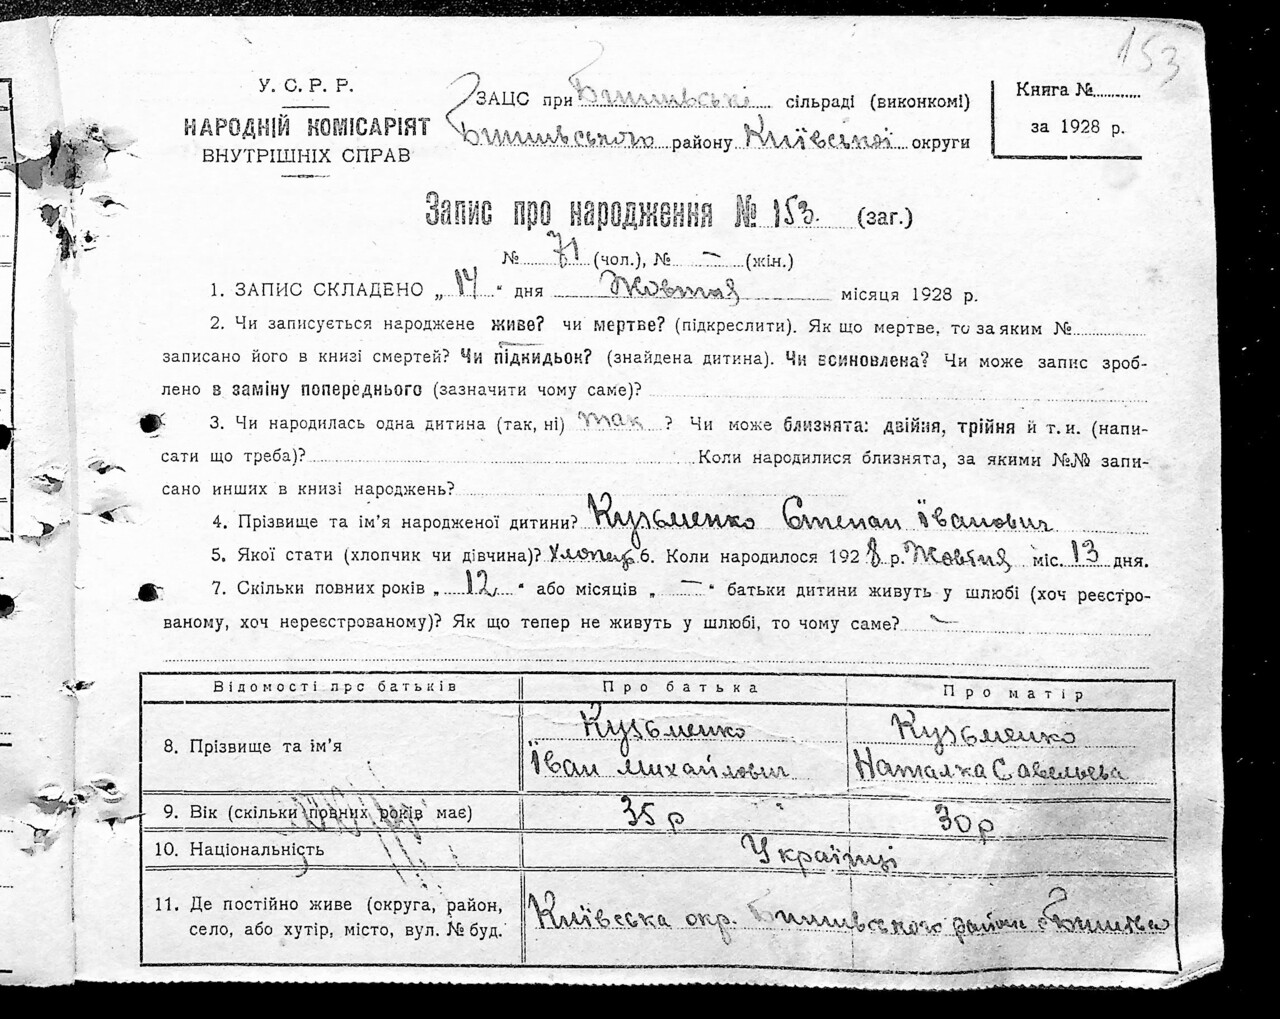 153
У. С. Р. Р.
НАРОДНІЙ КОМІСАРІЯТ
ВНУТРІШНІХ СПРАВ
ЗАЦС при Бишівські сільраді (виконкомі)
Бишівського району Київської округи
Книга №
за 1928 р.
Запис про народження № 153. (заг.)
№ 71 (чол.), № — (жін.)
1. ЗАПИС СКЛАДЕНО „14“ дня Жовтня місяця 1928 р.
2. Чи записується народжене живе? чи мертве? (підкреслити). Як що мертве, то за яким №
записано його в книзі смертей? Чи підкидьок? (знайдена дитина). Чи всиновлена? Чи може запис зроб-
лено в заміну попереднього (зазначити чому саме)?
3. Чи народилась одна дитина (так, ні) так ? Чи може близнята: двійня, трійня й т. и. (напи-
сати що треба)? Коли народилися близнята, за якими №№ запи-
сано инших в книзі народжень?
4. Прізвище та ім'я народженої дитини? Кузьменко Степан Іванович
5. Якої стати (хлопчик чи дівчина)? Хлопець 6. Коли народилося 1928 р. Жовтня міс. 13 дня.
7. Скільки повних років „12“ або місяців „—“ батьки дитини живуть у шлюбі (хоч реєстро-
ваному, хоч нереєстрованому)? Як що тепер не живуть у шлюбі, то чому саме? —
Відомості про батьків Про батька Про матір
8. Прізвище та ім'я Кузьменко Іван Михайлович Кузьменко Наталка Савельєва
9. Вік (скільки повних років має) 35 р 30 р
10. Національність Українці
11. Де постійно живе (округа, район,
село, або хутір, місто, вул. № буд. Київська окр. Бишівського район с Бишів